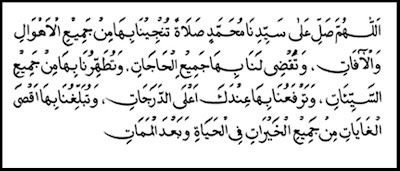 اَللّٰهُمَّ صَلِّ عَلٰى سَيِّدِنَا مُحَمَّدٍ صَلَاةً تُنْجِيْنَابِهَا مِنْ جَمِيْعِ الْاَهْوَالِ
وَالْآفَاتِ ، وَتَقْضِى لَنَابِهَا جَمِيْعَ الْحَاجَاتِ ، وَتُطَهِّرُنَابِهَا مِنْ جَمِيْعِ
السَّيِّئَاتِ ، وَتَرْفَعُنَابِهَا عِنْدَكَ اَعْلَى الدَّرَجَاتِ ، وَتُبَلِّغُنَابِهَا اَقْصَى
الْغَايَاتِ مِنْ جَمِيْعِ الْخَيْرَاتِ فِى الْحَيَاةِ وَبَعْدَ الْمَمَاتِ